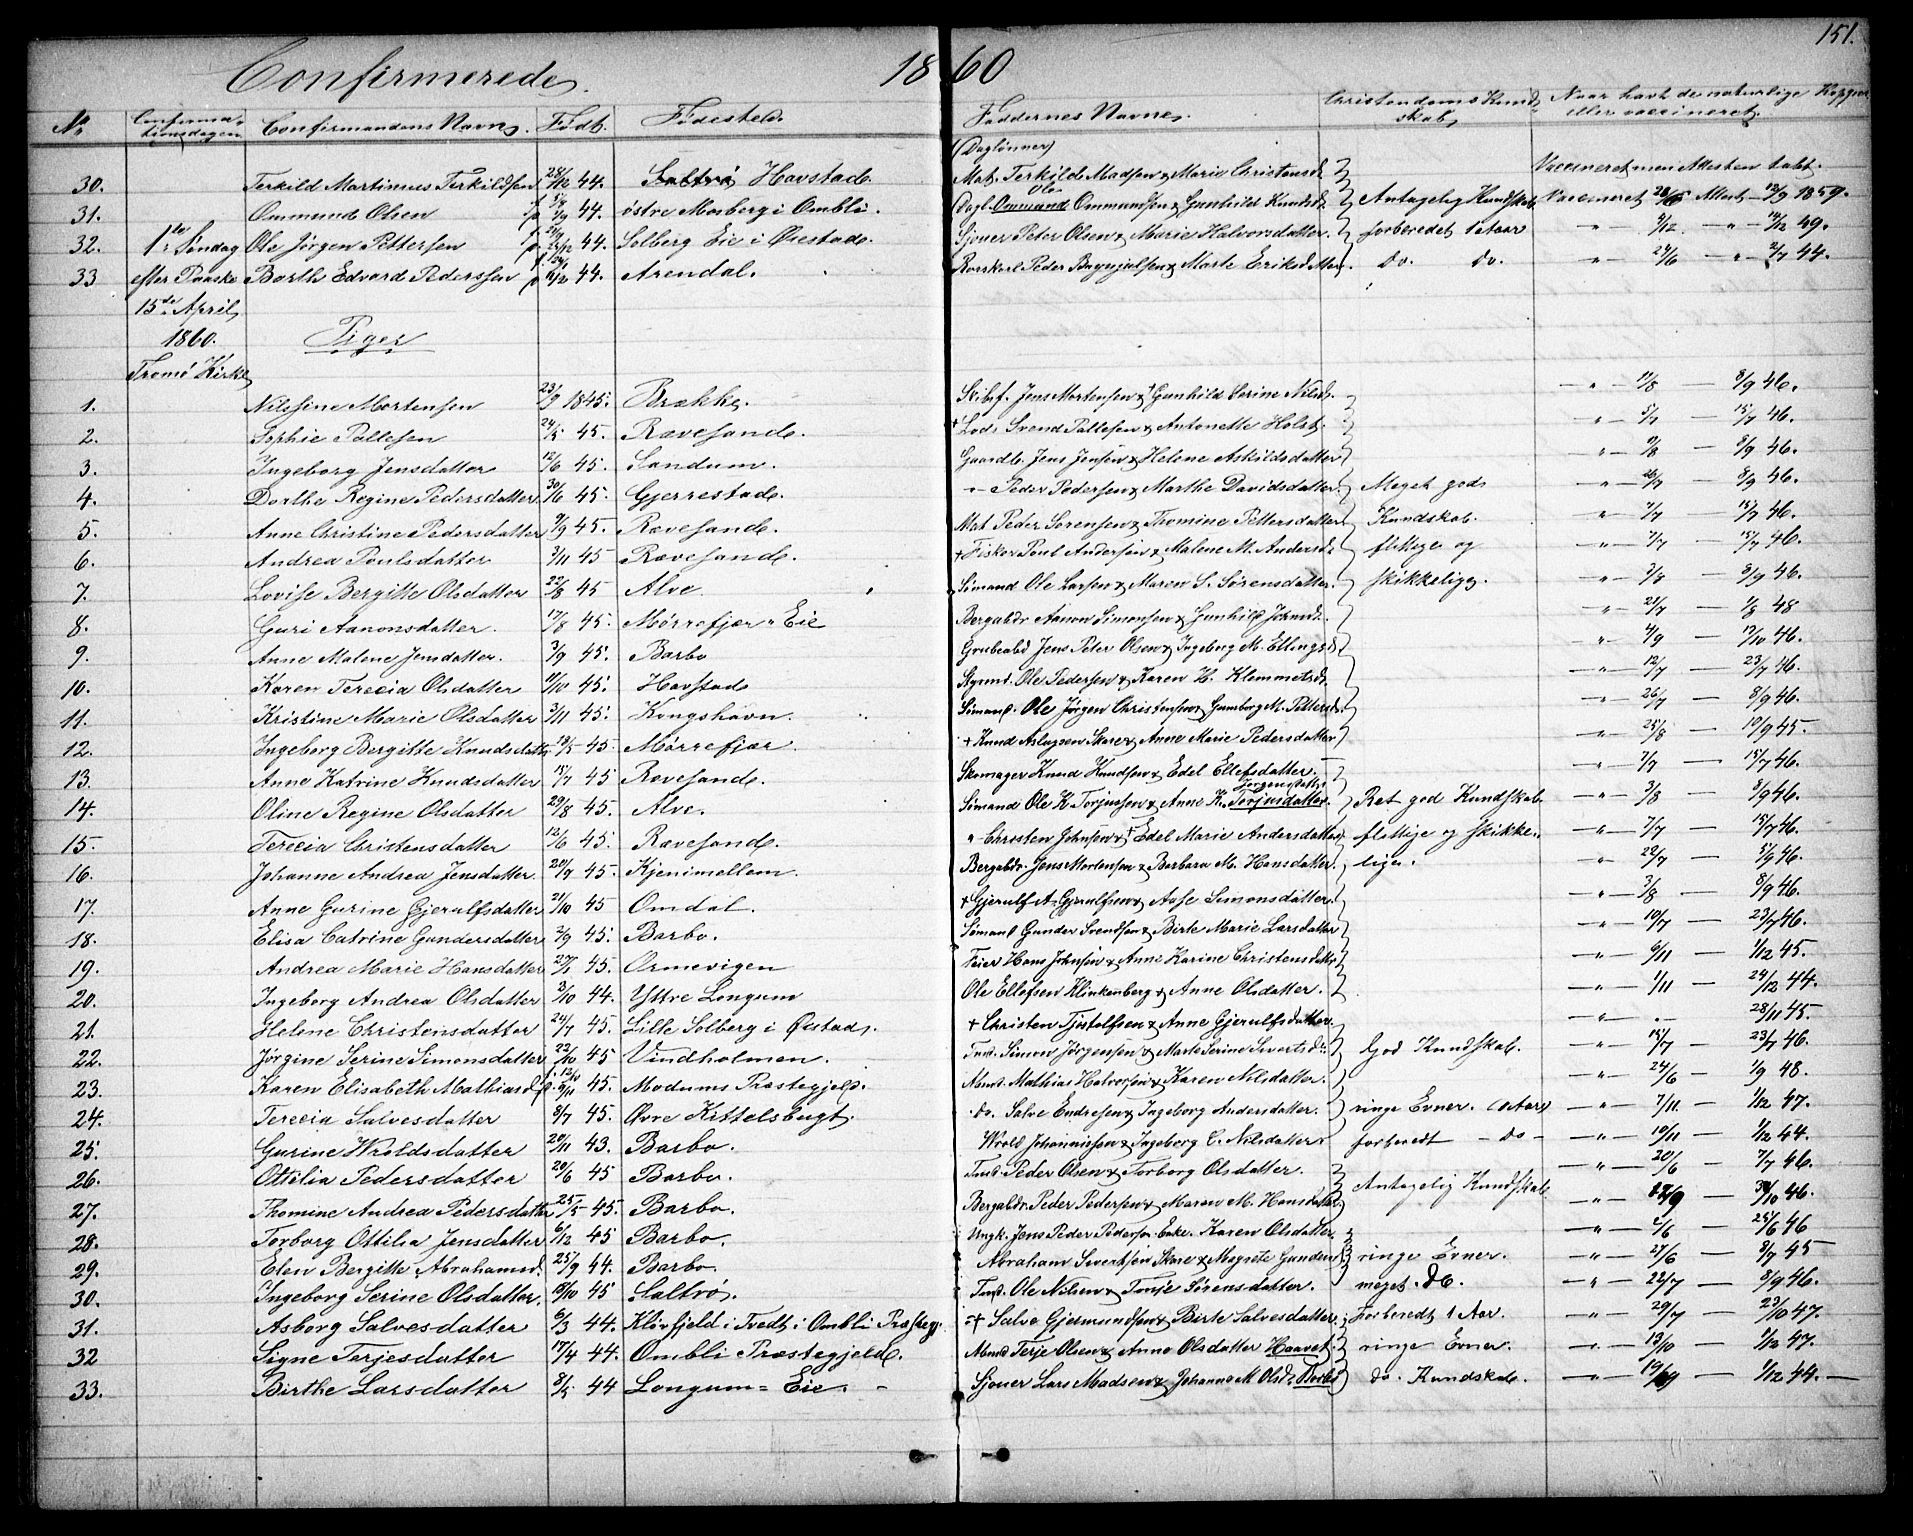 151.
Confirmerede 1860
No Confirmationsdagen Confirmandens Navn Født. Fødested Faddernes Navne. Christendoms Kundskab Naar havt de naturlige Kopper eller vaccineret.
30. Terkild Martinius Terkildsen 28/12 44. Havstad. (Daglønner) Mat. Terkild Madsen & Marie Christensd. Vaccineret men Attesten tabt.
31. Ommund Olsen 44. østre Mosberg i Ombli. Dagl. Ole Ommundsen & Gunhild Knudsd. Antagelig Kundskab Vaccineret Attest 12/9 1859.
32. 1ste Søndag Ole Jørgen Pettersen 44. Solberg Eie i Øiestad. Sjouer Peter Olsen & Marie Halvorsdatter. forberedet 1 Aar 2/12 14/12 49.
33 efter Paaske Barth Edvard Pederssen 44. Arendal. Peder & Marte Eriksdatter. do. do. 24/6 2/7 44.
15de April
1860.
Tromø Kirke
Piger
1. Nilssine Mortensen 23/9 1845. Brække. Skibsf. Jens Mortensen & Gunhild Serine Nilsd. 11/8 8/9 46.
2. Sophie Pallesen 24/5 45. Rævesand. + Lods Svend Pallesen & Antonette Holst. 5/7 15/7 46.
3. Ingeborg Jensdatter 12/6 45. Sandum. Gaardb. Jens Jensen & Helene Askildsdatter 9/8 8/9 46.
4. Dorthe Regine Pedersdatter 30/6 45. Gjerrestad. Peder Pedersen & Marthe Davidsdatter. Meget god 26/7 8/9 46.
5. Anne Christine Pedersdatter 9/9 45. Rævesand. Mat Peder Sørensen & Thomine Pettersdatter Kundskab. 7/7 15/7 46.
6. Andrea Poulsdatter 3/11 45 Rævesand. + Fisker Poul Andersen & Malene M. Andersd. flittige og 7/7 15/7 46.
7. Lovise Bergitte Olsdatter 22/8 45 Alve. Sömand Ole Larsen & Maren S. Sørensdatter. skikkelige. 3/8 8/9 46.
8. Guri Aanonsdatter. 17/8 45. Mørrefjær Eie Bergabdr Aanon Simonsen & Gunhild Johnsd. 21/7 1/8 48
9. Anne Malene Jensdatter. 3/9 45. Barbo Grubeabd Jens Peter Olsen & Ingeborg M. Ellingsd. 4/9 17/10 46.
10. Karen Terecia Olsdatter 11/10 45. Havstad Ole Pedersen & Karen H. Klemmetsd. 12/7 23/7 46.
11. Kristine Marie Olsdatter 3/11 45. Kongshavn. Sömand. Ole Jörgen Christensen & Gunborg M. Pettersd. 26/7 8/9 46.
12. Ingeborg Bergitte Knudsdatter 13/5 45. Mørrefjær. + Knud Aslagsen Skare & Anne Marie Pedersdatter 25/8 10/9 45.
13. Anne Katrine Knudsdatter 15/7 45 Rævesand. Skomager Knud Knudsen & Edel Ellefsdatter. 7/7 15/7 46.
14. Oline Regine Olsdatter 29/8 45. Alve. Sömand Ole K Torjussen & Anne K. Torjusdatter. Jörgensdatter Ret god Kundskab 3/8 8/9 46.
15. Terecia Christensdatter 12/6 45. Rævesand. Christen Johnsen & Edel Marie Andersdatter flittige og skikke- 7/7 15/7 46.
16. Johanne Andrea Jensdatter 20/7 45. Kjenimellem. Bergabdr. Jens Mortensen & Barbara M. Hansdatter. lige. 22/7 5/9 46.
17. Anne Gurine Gjerulfsdatter 21/10 45 Omdal. + Gjerulf A. Gjerulfsen & Aase Simonsdatter. 3/8 8/9 46.
18. Elisa Catrine Gundersdatter 2/9 45. Barbo. Sömand Gunder Svendsen & Birte Marie Larsdatter 10/7 23/7 46.
19. Andrea Marie Hansdatter 45. Ormevigen Feier Hans Johnsen & Anne Karine Christensdatter 6/11 1/12 45.
20. Ingeborg Andrea Olsdatter 3/10 44. Yttre Longum Ole Ellefsen Klinkenberg & Anne Olsdatter. 1/11 24/12 44.
21. Helene Christensdatter 24/7 45. Lille Solberg i Øiestad. + Christen Tjøstolfsen & Anne Gjerulfsdatter. 28/11 45.
22. Jørgine Serine Simonsdatter 22/10 45 Vindholmen. Tmd. Simon Jörgensen & Marte Serine Sivertsd. God Kundskab. 15/7 23/7 46.
23. Karen Elisabeth Mathiasd. 45. Modums Præstegjeld. Mathias Halvorsen & Karen Nilsdatter. 24/6 1/9 48.
24. Terecia Salvesdatter 8/7 45. Øvre Kittelsbugt. do. Salve Endresen & Ingeborg Andersdatter. ringe Evner. 7/11 1/12 47.
25. Gurine Wroldsdatter 20/11 43. Barbo. Wrold Johannissen & Ingeborg C. Nilsdatter forberedt - do - 10/11 1/12 44.
26. Ottilia Pedersdatter 20/6 45 Barbo. Tmd. Peder Olsen & Torborg Olsdatter. Antagelig Kundskab 20/6 7/7 46.
27. Thomine Andrea Pedersdatter 25/5 45. Barbo. Bergabdr. Peder Pedersen & Maren M. Hansdatter 46.
28. Torborg Ottilia Jensdatter 6/12 45 Barbo. Ungk. Jens Peder Pedersen Enke. Karen Olsdatter 2/6 25/6 46
29. Elen Bergitte Abrahamsd. 25/9 44. Barbo. Abraham Sivertsen Skare & Magrete Gundersd. ringe Evner. 27/6 8/7 45
30. Ingeborg Serine Olsdatter. 8/10 45 Saltrø. Tmd. Ole Nilsen & Tonje Sörensdatter. meget do. 22/7 8/9 46.
31. Asborg Salvesdatter 6/3 44. Klovfjeld i Tvedt i Ombli Præstegj. + Salve Gjermundsen & Birte Salvesdatter. Forberedt 1 Aar. 29/7 23/10 47.
32 Signe Terjesdatter 17/4 44. Ombli Præstegjeld. Terje Olsen & Anne Olsdatter ringe Evner. 13/10 1/12 47.
33. Birthe Larsdatter 8/5 44 Longum Eie. Sjouer Lars Madsen & Johanne M. Olsd. do. Kundskab. 1/12 44.